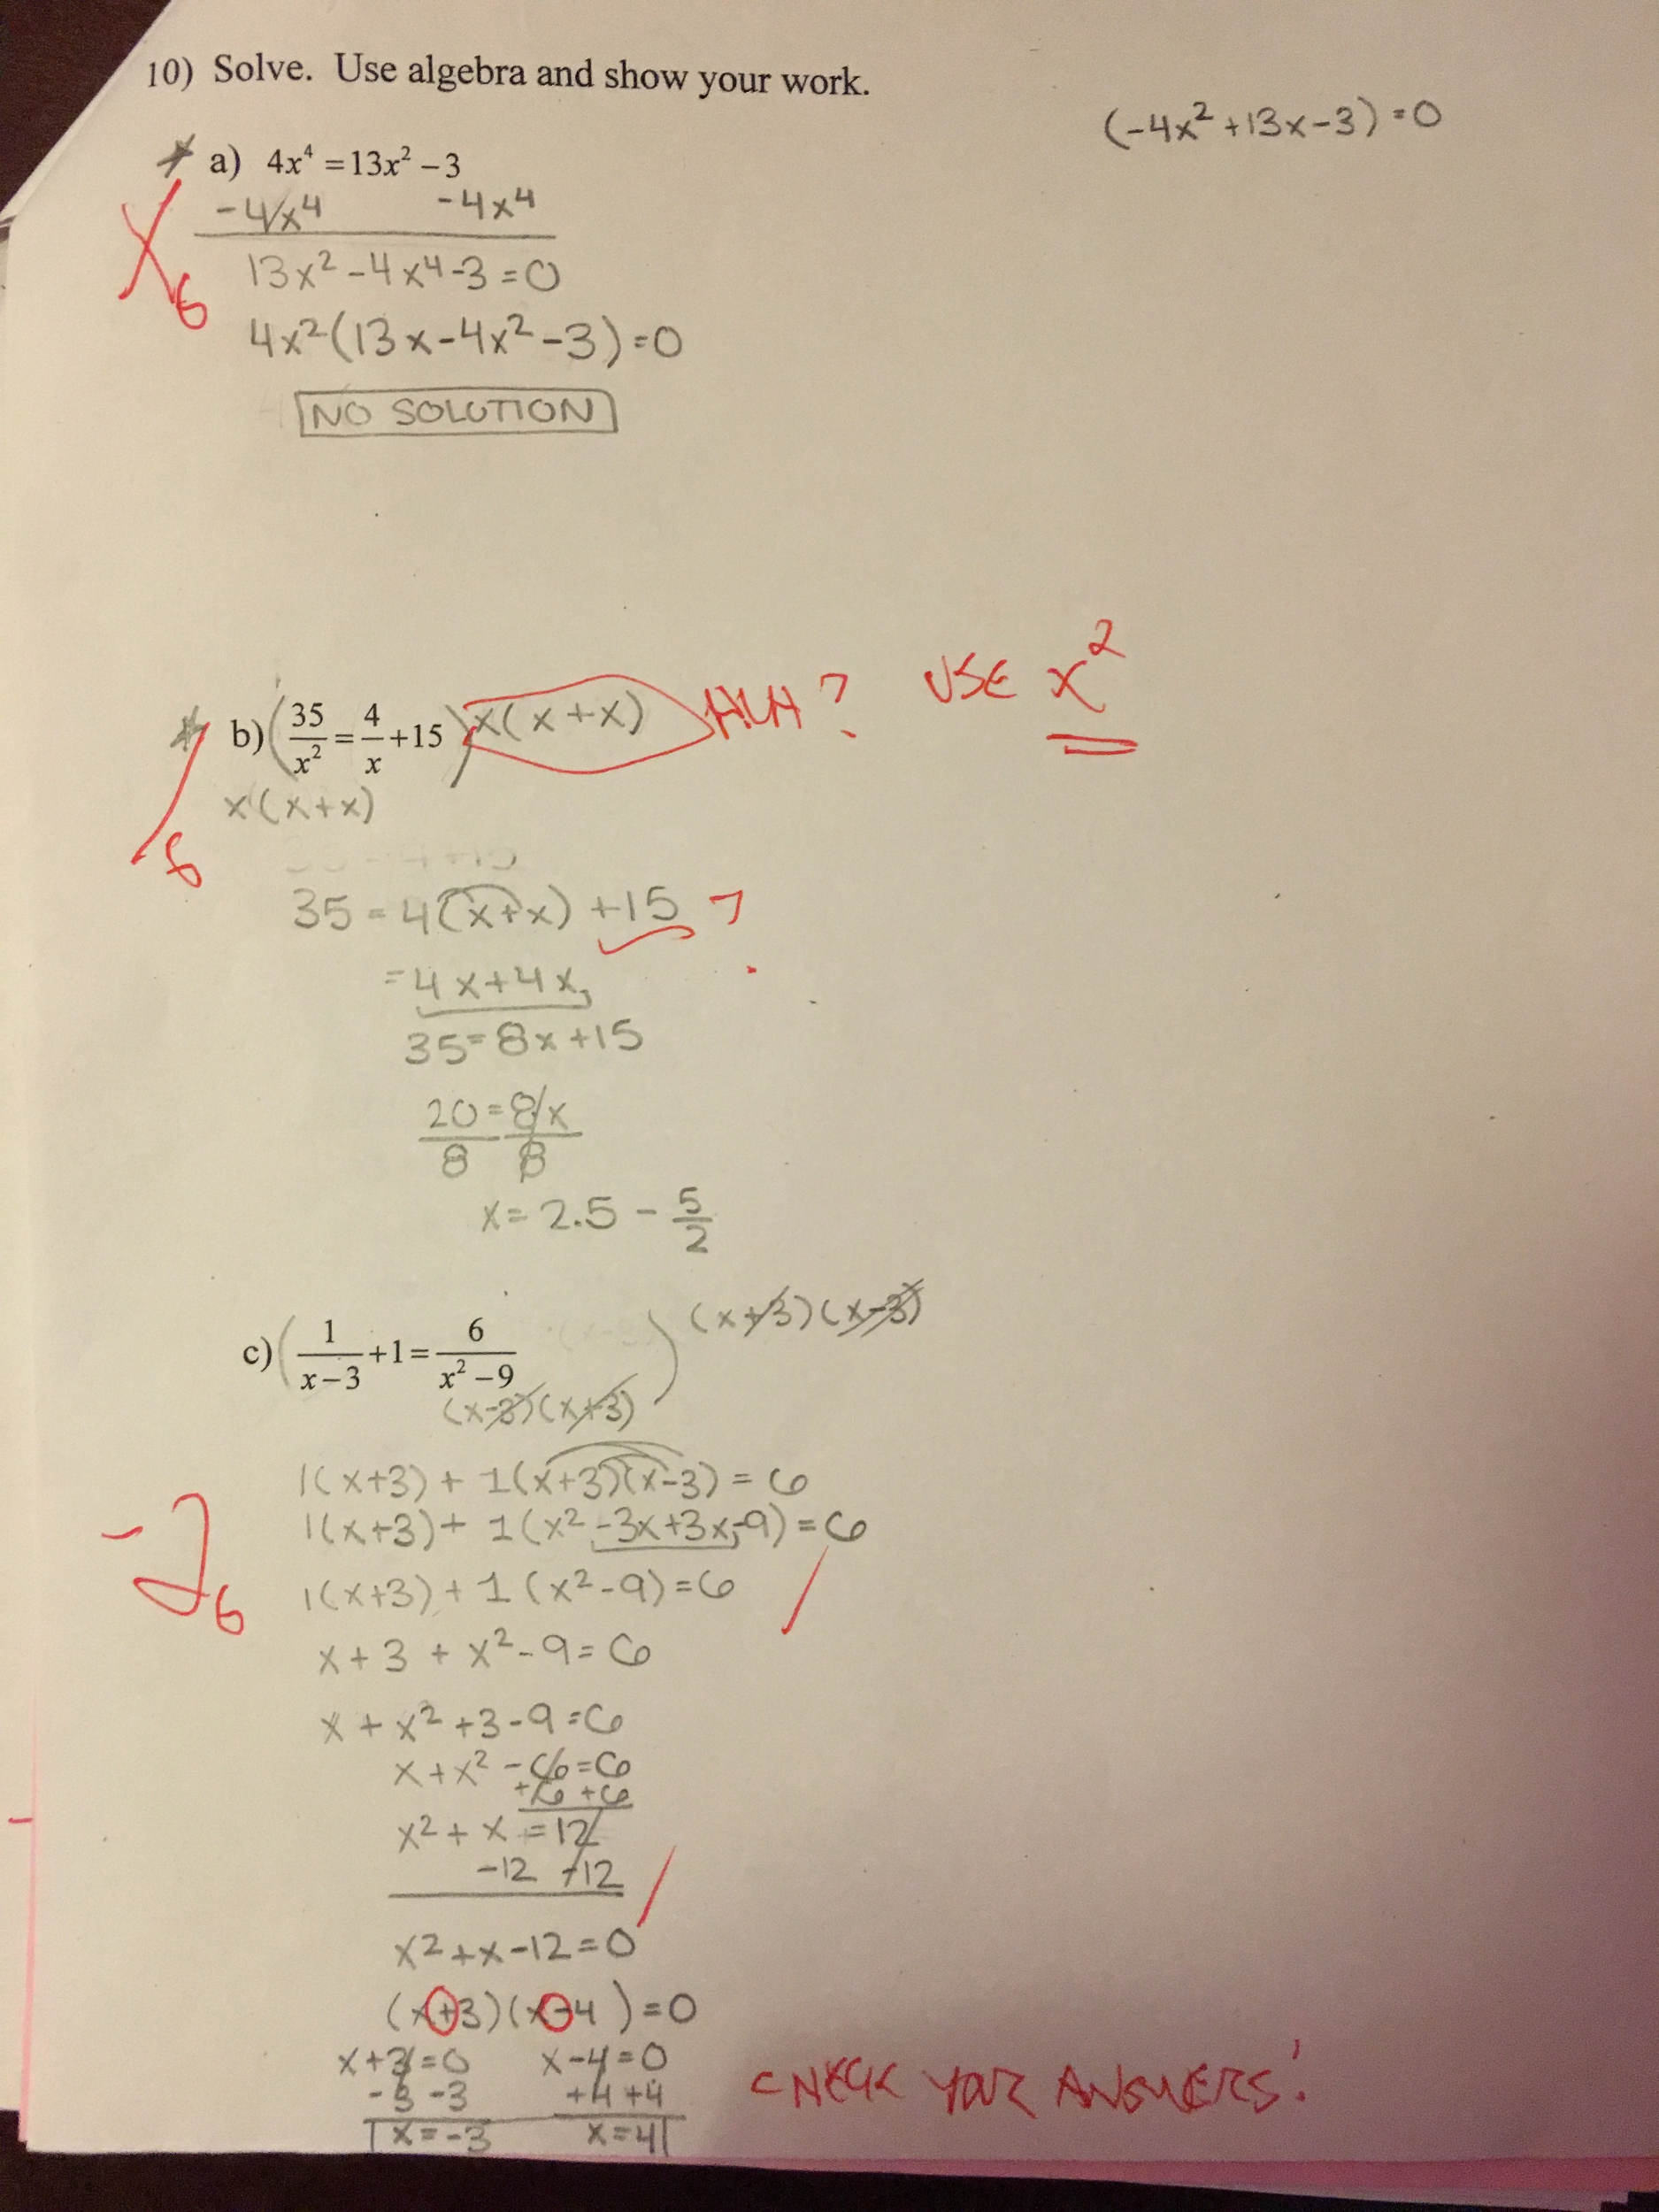 10) Solve. Use algebra and show your work.
(-4x² +13x-3) =0
a) 4x⁴ =13x² –3
-4x⁴ -4x⁴
X
6
13x² -4x⁴-3=0
4x²(13x-4x²-3)=0
NO SOLUTION
b) (35/x² = 4/x +15) x(x+x) HUH? USE x²
x(x+x)
8
35=4(x+x) +15 ?
=4x+4x
35=8x+15
20/8 = 8x/8
x= 2.5 - 5/2
c) (1/(x–3) +1= 6/(x² –9)) (x+3)(x-3)
(x-3)(x+3)
1(x+3) + 1(x+3)(x-3) = 6
1(x+3)+ 1(x² -3x+3x-9) =6
-2
6
1(x+3)+1(x²-9)=6
x+3 + x²-9=6
x + x² +3-9=6
x+x² -6=6
+6 +6
x²+ x =12
-12 -12
x²+x-12=0
(x+3)(x-4)=0
x+3=0 x-4=0
-3 -3 +4 +4
x=-3 x=4
CHECK YOUR ANSWERS!